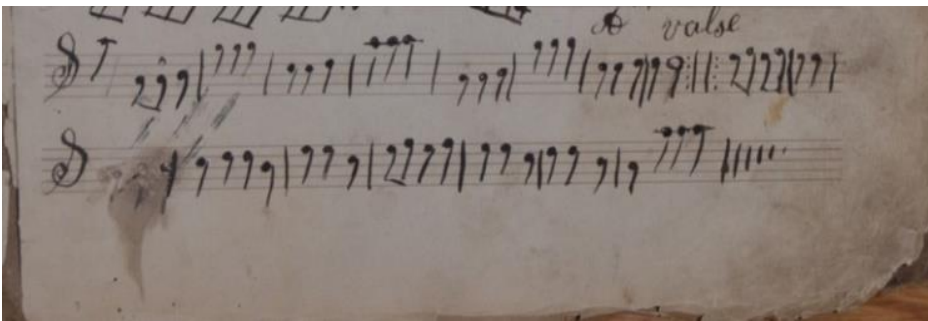 A valse